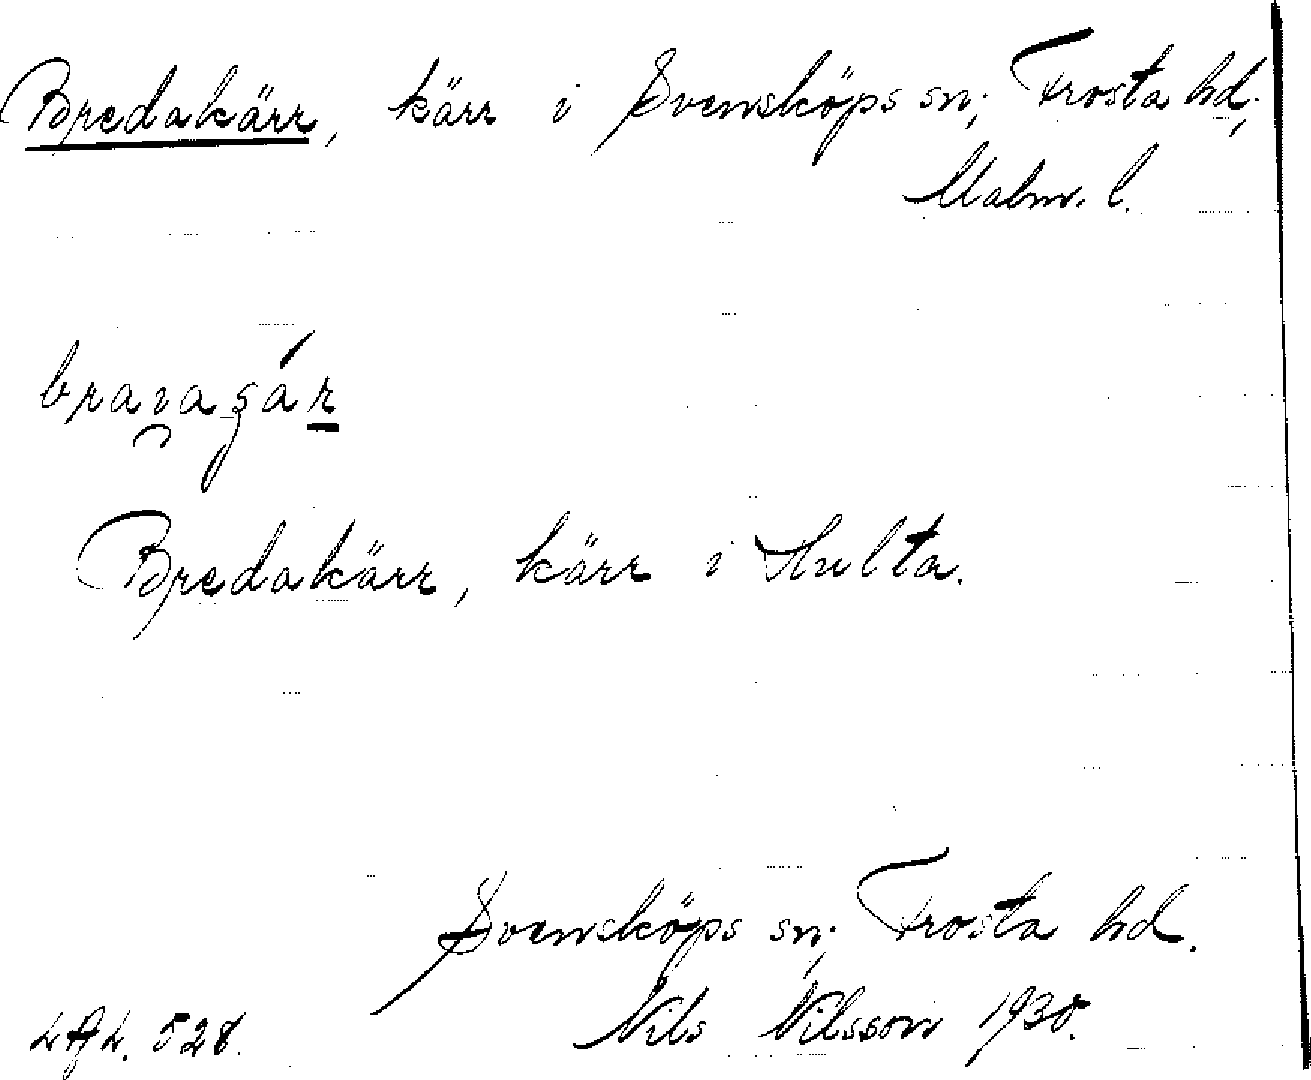 Bredakärr, kärr i Svensköps sn; Frosta hd;
Malm. l.
Bredakärr, kärr i Hulta.
Svensköps sn; Frosta hd.
Nils Nilsson 1930.